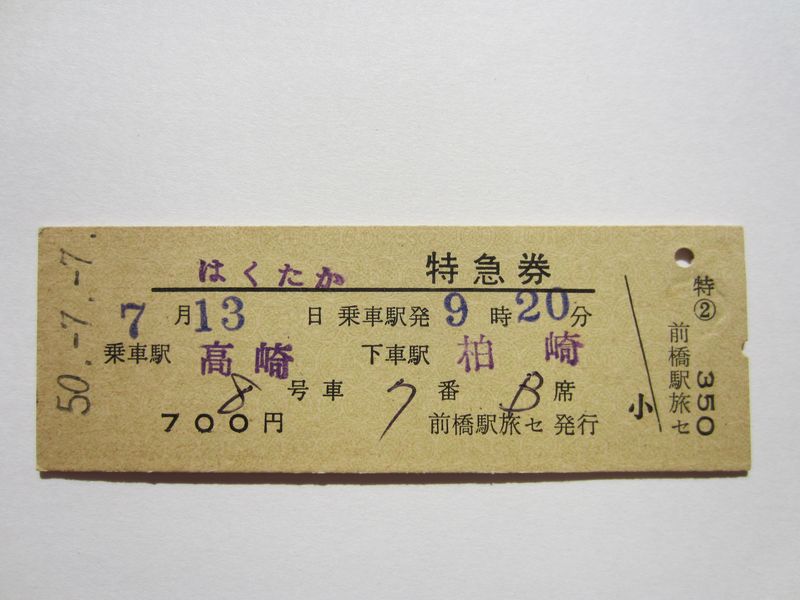 50.-7.-7.
はくたか 特急券
7月13日 乗車駅発 9時20分
乗車駅 高崎 下車駅 柏崎
8号車 7番 B席
700円 前橋駅旅セ 発行
小
特②
350
前橋駅旅セ